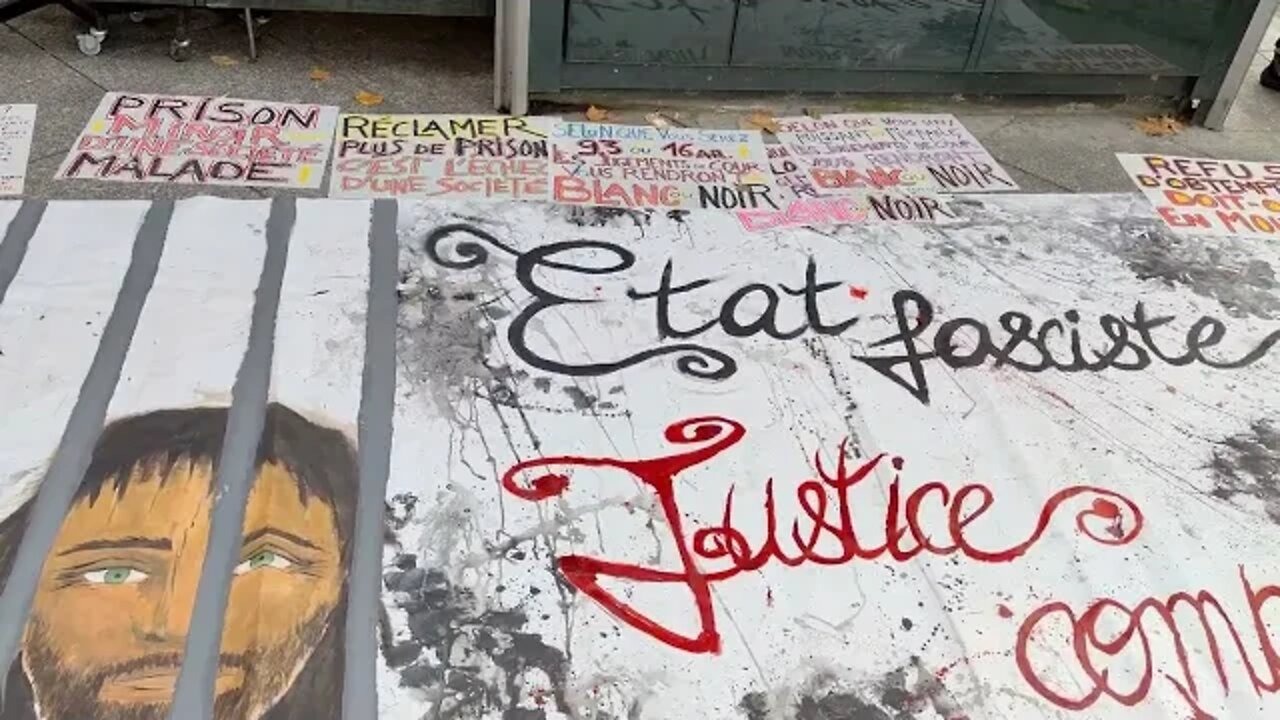 PRISON
MIROIR
D'UNE SOCIÉTÉ
MALADE !
RÉCLAMER
PLUS DE PRISON
C'EST L'ÉCHEC
D'UNE SOCIÉTÉ
SELON QUE VOUS SEREZ
93 OU 16 AR.
LES JUGEMENTS DE COUR
VOUS RENDRON
BLANC OU NOIR
SELON QUE VOUS SEREZ
BLANC OU NOIR
BLANC OU NOIR
REFUS
D'OBTEMP
DOIT-O
EN MOU
Etat fasciste
Justice
comp